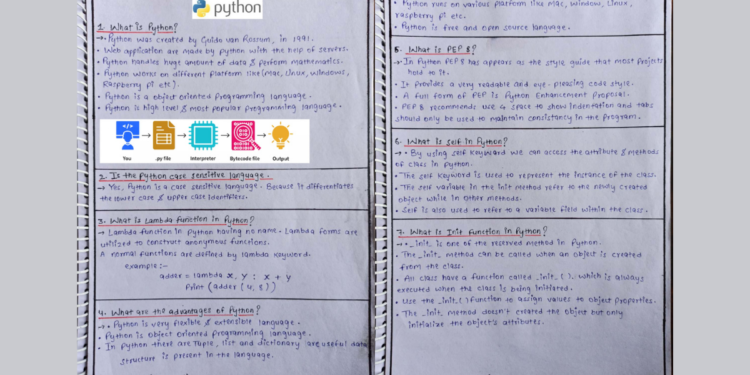 python
1. What is Python?
→ • Python was created by Guido van Rossum, in 1991.
• Web application are made by python with the help of servers.
• Python handles hugt amount of data & perform mathematics.
• Python works on different platform like (Mac, Linux, Windows,
Raspberry pi etc).
• Python is a object oriented Programming language.
• Python is high level & most popular programming language.
You
.py file
Interpreter
Bytecode file
Output
2. Is the Python case sensitive language.
→ Yes, Python is a case sensitive language. Because it differentiates
the lower case & upper case identifiers.
3. What is Lambda function in Python?
→ Lambda function in python having no name. Lambda forms are
utilized to construct anonymous functions.
A normal functions are defined by lambda keyword.
example:-
adder = lambda x, y : x + y
Print (adder (4, 8))
4. What are the advantages of Python?
→ • Python is very flexible & extensible language.
• Python is object oriented Programming language.
• In Python there are Tuple, list and dictionary are useful data
structure is present in the language.
• Python runs on various platform like Mac, Window, Linux,
raspberry pi etc.
• Python is free and open source language.
5. What is PEP 8?
→ • In Python PEP 8 has appears as the style guide that most Projects
hold to it.
• It provides a very readable and eye-pleasing code style.
• A full form of PEP is Python Enhancement Proposal.
• PEP 8 recommends use 4 space to show indentation and tabs
should only be used to maintain consistancy in the program.
6. What is self in Python?
→ • By using self keyword we can access the attribute & methods
of class in Python.
• The self keyword is used to represent the instance of the class.
• The self variable in the init method refer to the newly created
object while in other methods.
• Self is also used to refer to a variable field within the class.
7. What is Init function in Python?
→ • _init_ is one of the reserved method in Python.
• The _init_ method can be called when an object is created
from the class.
• All class have a function called _init_( ), which is always
executed when the class is being initiated.
• Use the _init_( ) function to assign values to object properties.
• The _init_ method doesn't created the object but only
initialize the object's attributes.